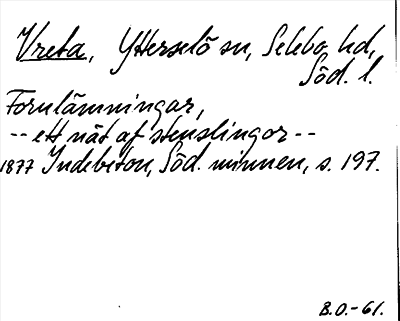 Vreta, Ytterselö sn, Selebo hd,
Söd. l.
Fornlämningar,
-- ett nät af stenslingor --
1877 Indebetou, Söd. minnen, s. 197.
B.O.-61.